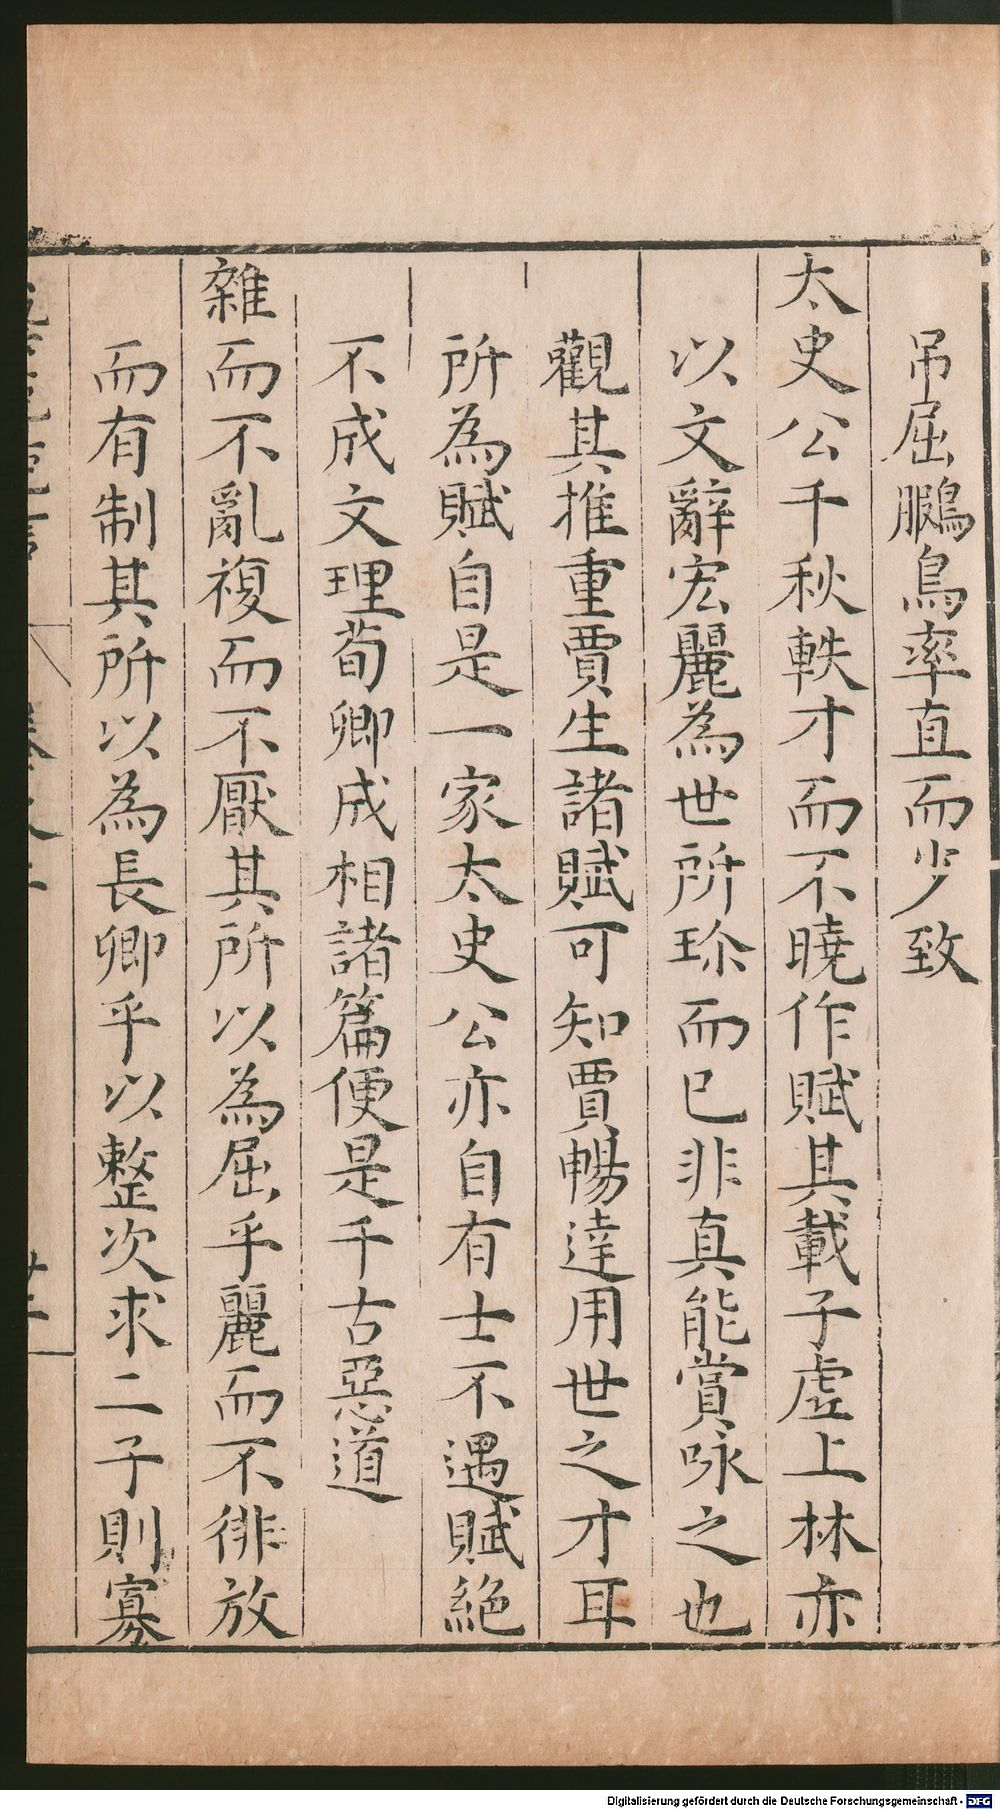 吊屈鵩鳥率直而少致
太史公千秋軼才而不曉作賦其載子虛上林亦
以文辭宏麗為世所珍而已非真能賞咏之也
觀其推重賈生諸賦可知賈暢達用世之才耳
所為賦自是一家太史公亦自有士不遇賦絕
不成文理荀卿成相諸篇便是千古惡道
雜而不亂複而不厭其所以為屈乎麗而不俳放
而有制其所以為長卿乎以整次求二子則寡
Digitalisierung gefördert durch die Deutsche Forschungsgemeinschaft - DFG